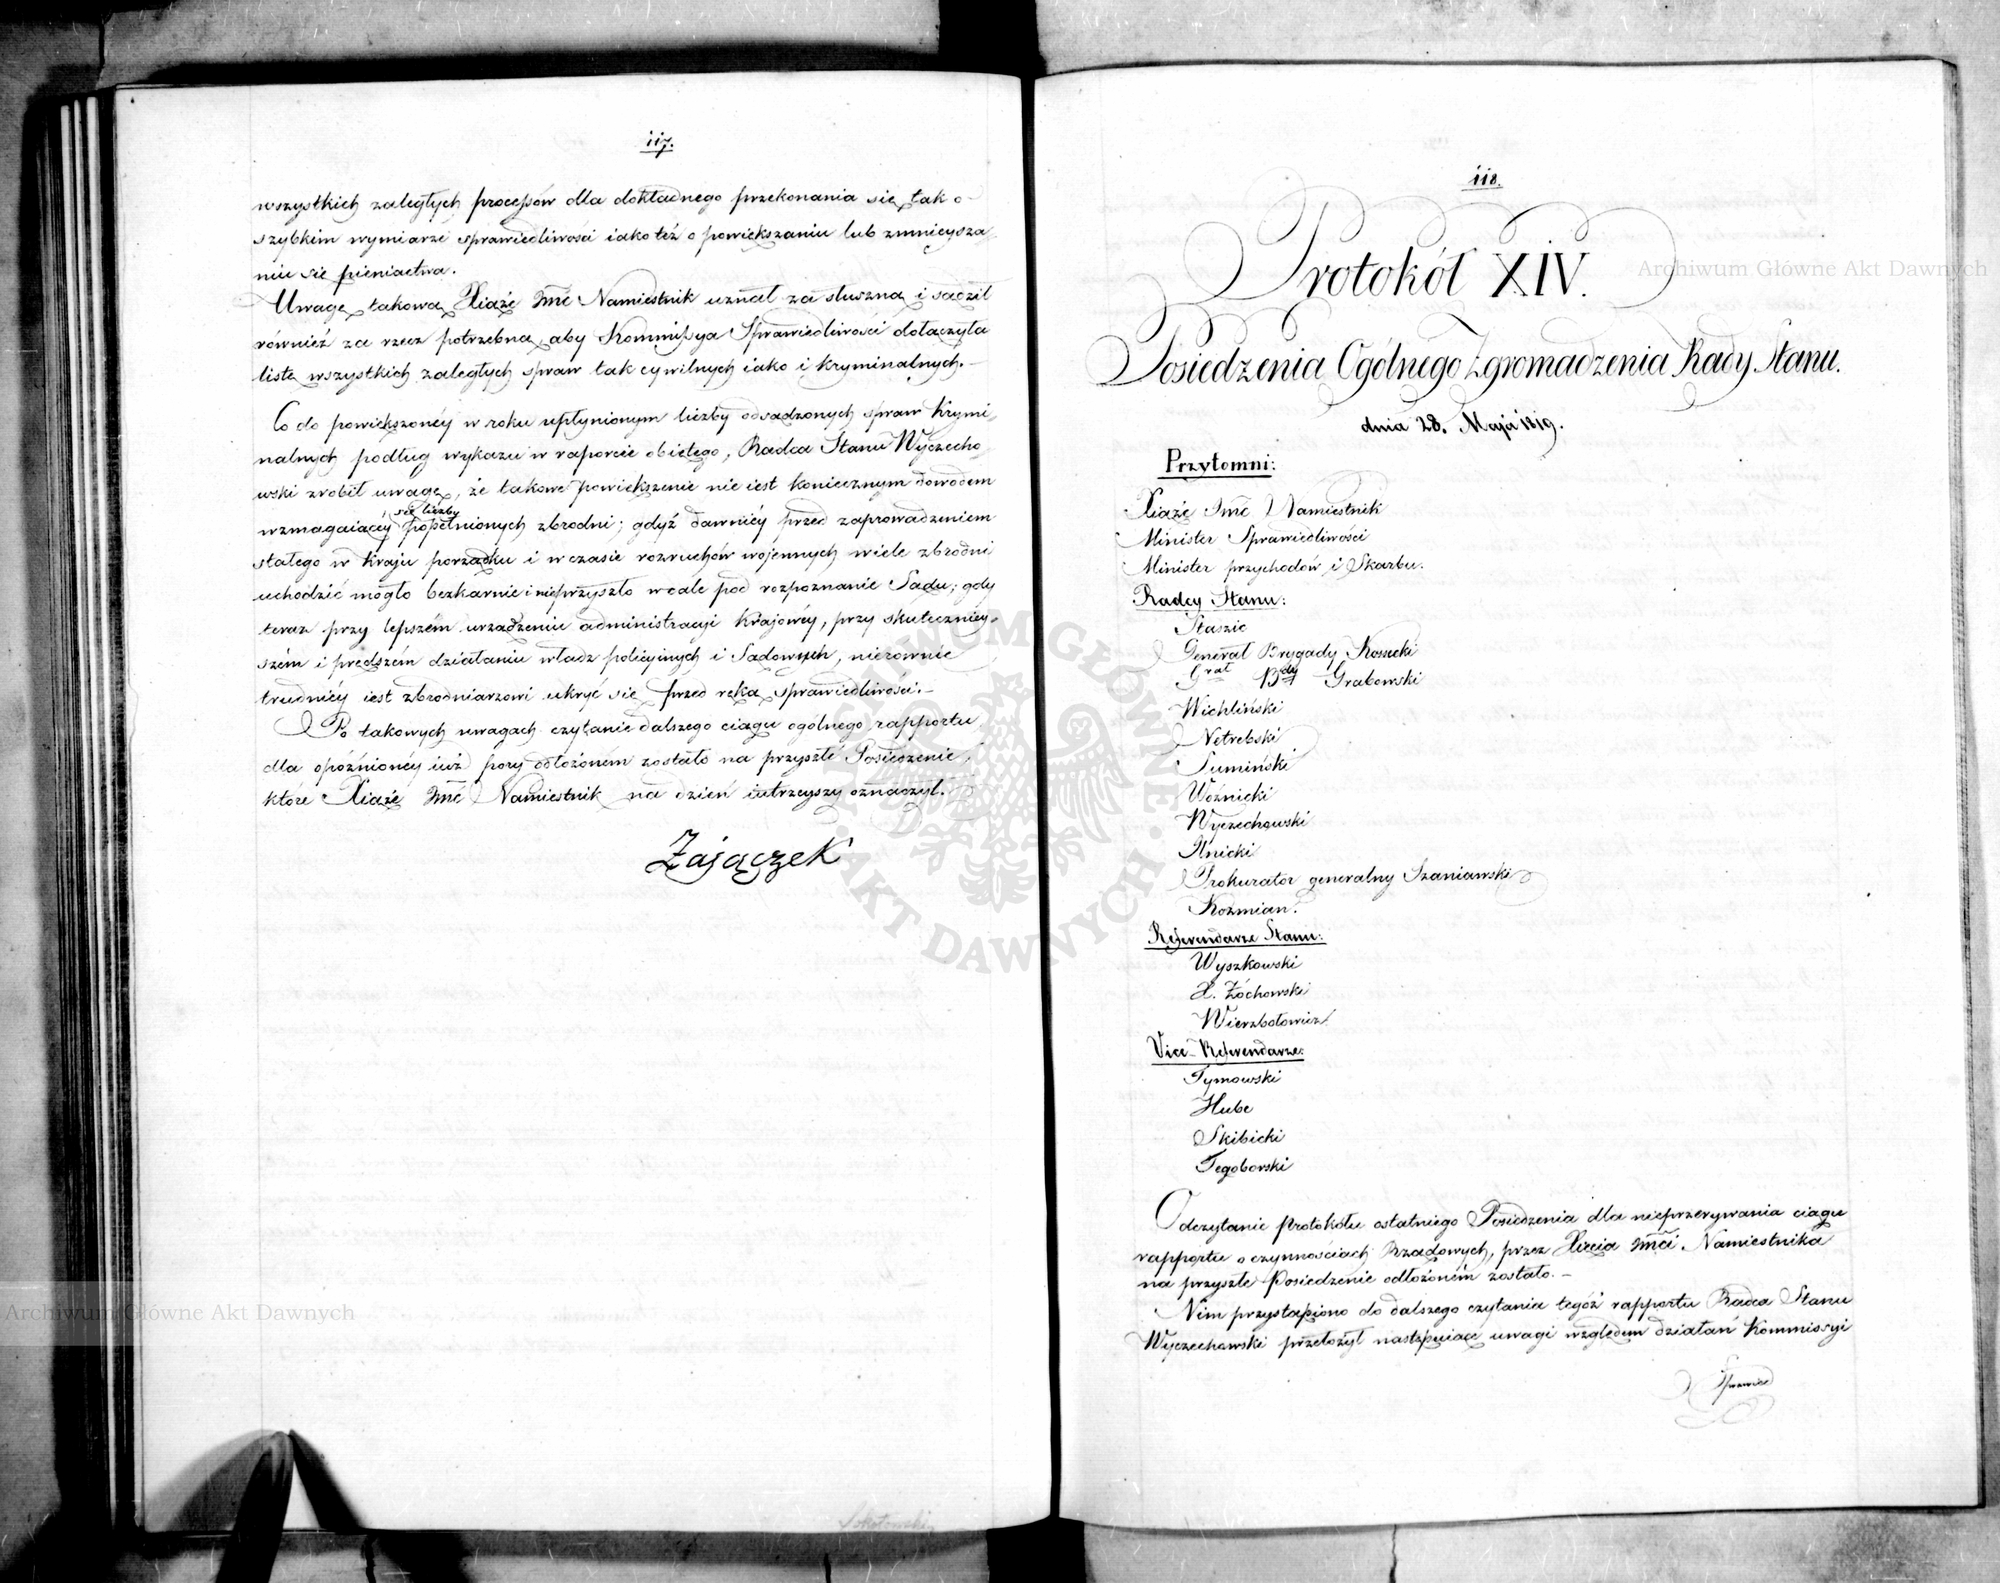 117.
wszystkich zaległych processów dla dokładnego przekonania się tak o
szybkim wymiarze sprawiedliwości iako też o powiększaniu lub zmnieysza-
niu się pieniactwa.
Uwagę takową Xiąże Jmć Namiestnik uznał za słuszną i sądził
również za rzecz potrzebną, aby Kommissya Sprawiedliwości dołączyła
listę wszystkich zaległych spraw tak cywilnych iako i kryminalnych.-
Co do powiększonéy w roku upłynionym liczby odsądzonych spraw krymi-
nalnych podług wykazu w raporcie obiętego, Radca Stanu Wyczecho-
wski zrobił uwagę, że takowe powiększenie nie iest koniecznym dowodem
wzmagaiącéy się liczby popełnionych zbrodni; gdyż dawniéy przed zaprowadzeniem
stałego w Kraju porządku i w czasie rozruchów wojennych wiele zbrodni
uchodzić mogło bezkarnie i nieprzyszło wcale pod rozpoznanie Sądu; gdy
teraz przy lepszém urządzeniu administracyi Krajowéy, przy skutecznéy-
szém i prędszém działaniu władz policyinych i Sądowych, nierównie
trudniéy iest zbrodniarzowi ukryć się przed ręką sprawiedliwości.-
Po takowych uwagach czytanie dalszego ciągu ogólnego rapportu
dla opóźnionéy iuż pory odłożoném zostało na przyszłe Posiedzenie,
które Xiąże Jmć Namiestnik na dzień iutrzeyszy oznaczył.
Zajączek
Sokołowski
118.
Protokół XIV.
Posiedzenia Ogólnego Zgromadzenia Rady Stanu.
dnia 28. Maja 1819.
Przytomni:
Xiąże Jmć Namiestnik
Minister Sprawiedliwości
Minister przychodów i Skarbu.
Radcy Stanu:
Staszic
Generał Brygady Kossecki
Grał Bdy Grabowski
Wichliński
Netrebski
Sumiński
Woźnicki
Wyczechowski
Ilnicki
Prokurator generalny Szaniawski
Kozmian.
Referendarze Stanu:
Wyszkowski
X. Żochowski
Wierzbołowicz
Vice-Referendarze:
Tymowski
Hube
Skibicki
Tęgoborski
Odczytanie protokółu ostatniego Posiedzenia dla nieprzerywania ciągu
rapportu o czynnościach Rządowych, przez Xięcia Jmci Namiestnika
na przyszłe Posiedzenie odłożoném zostało.-
Nim przystąpiono do dalszego czytania tegóż rapportu Radca Stanu
Wyczechowski przełożył następuiące uwagi względem działań Kommissyi
Sprawied
Archiwum Główne Akt Dawnych
Archiwum Główne Akt Dawnych
ARCHIWUM GŁÓWNE · AKT DAWNYCH ·